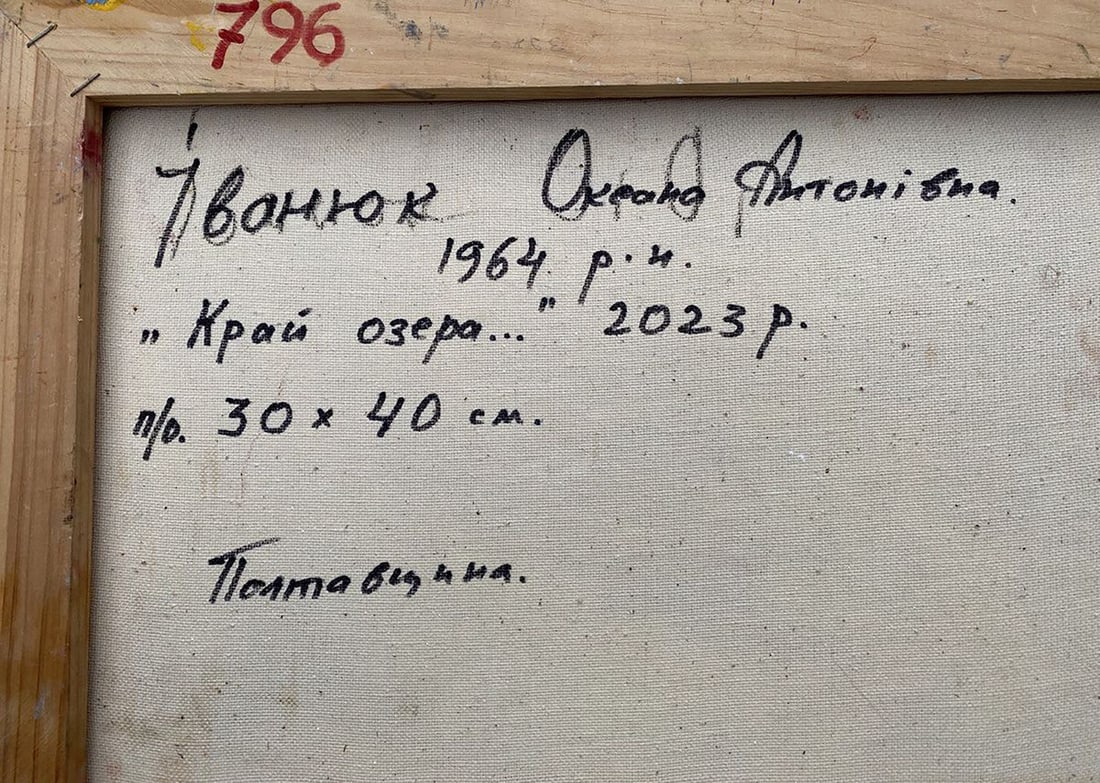 796
Іванюк Оксана Антонівна.
1964 р.н.
„Край озера..." 2023 р.
п/о. 30 х 40 см.
Полтавщина.